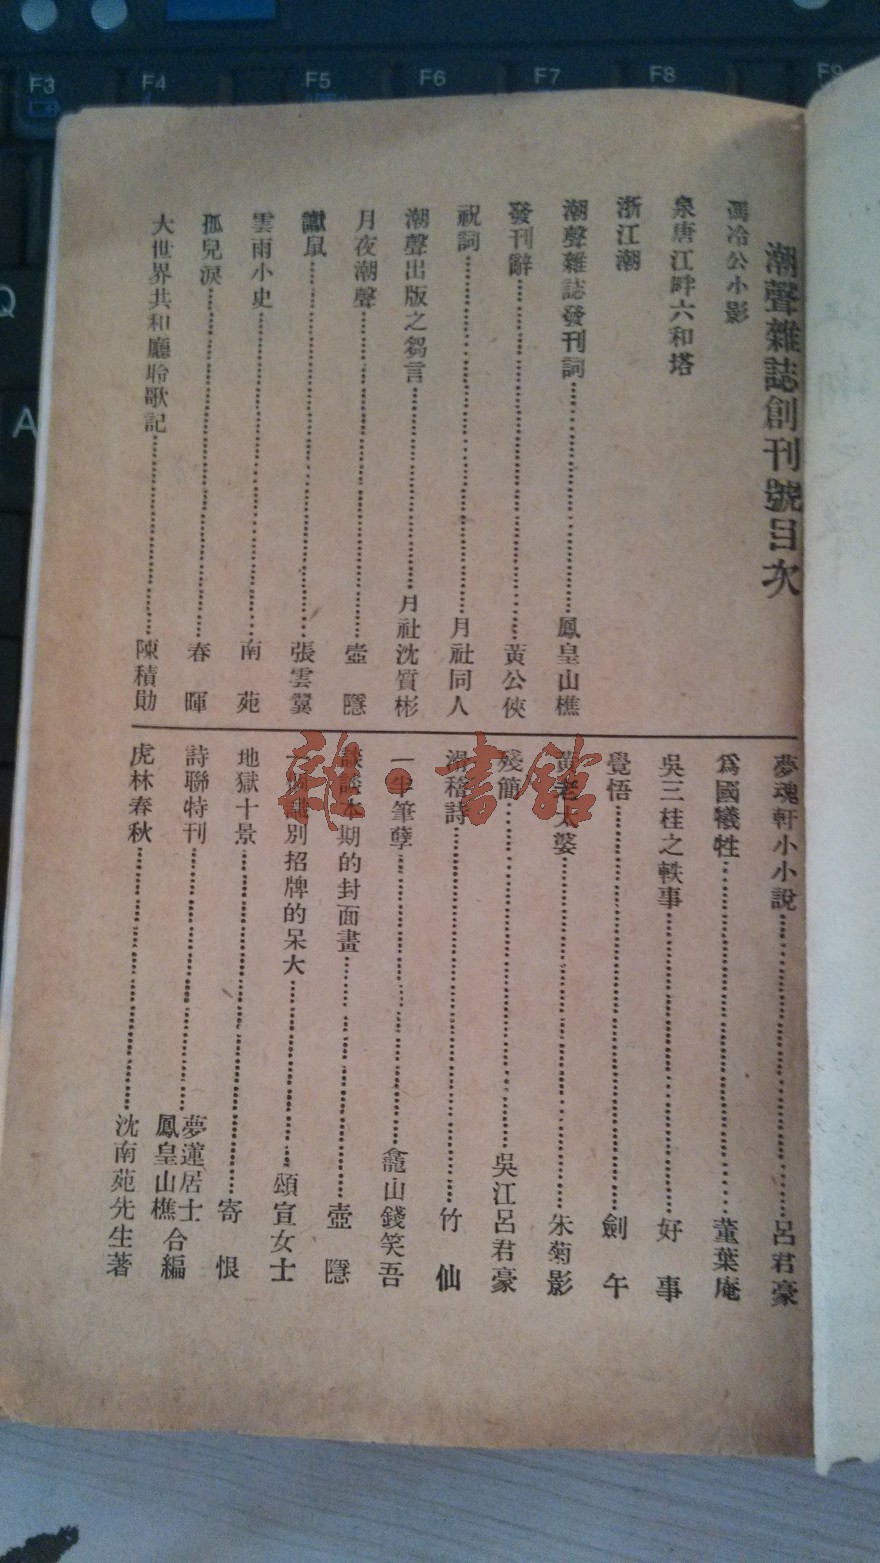 潮聲雜誌創刊號目次
馮冷公小影
泉唐江畔六和塔
浙江潮
潮聲雜誌發刊詞 鳳皇山樵
發刊辭 黃公俠
祝詞 月社同人
潮聲出版之芻言 月社沈質彬
月夜潮聲 壺隱
讞鼠 張雲翼
雲雨小史 南苑
孤兒淚 春暉
大世界共和廳聆歌記 陳積勛
夢魂軒小小說 呂君豪
爲國犧牲 董葉庵
吳三桂之軼事 好事
覺悟 劍午
黃老太婆 朱菊影
殘簡 吳江呂君豪
滑稽詩 竹仙
一半筆孽 龕山錢笑吾
談談本期的封面畫 壺隱
個識別招牌的呆大 頌宣女士
地獄十景 寄恨
詩聯特刊 夢蓮居士 鳳皇山樵 合編
虎林春秋 沈南苑先生著
雜·書館
F3
F4
F5
F6
F7
F8
F9
Q
A